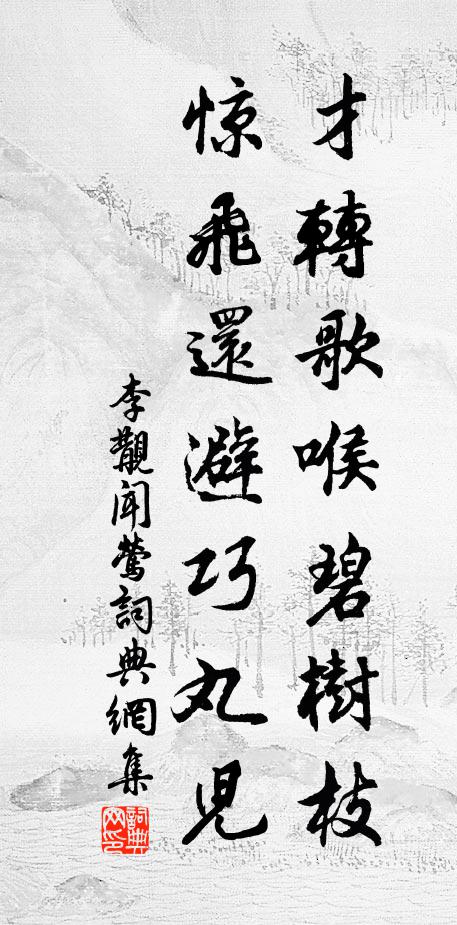 才轉歌喉碧樹枝
惊飛還避巧丸児
李觀聞鶯詞典網集
詞典网印